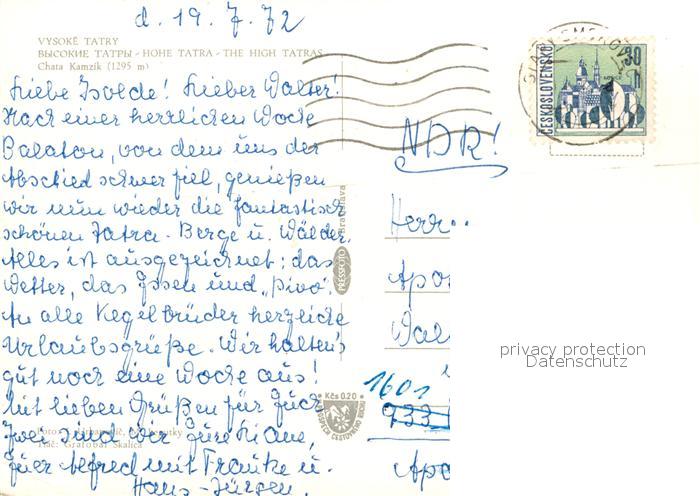 d. 19.7.72
VYSOKÉ TATRY
ВЫСОКИЕ ТАТРЫ - HOHE TATRA - THE HIGH TATRAS
Chata Kamzík (1295 m)
Liebe Isolde! Lieber Walter!
Nach einer herrlichen Woche
Balaton, von dem uns der
Abschied schwer fiel, genießen
wir nun wieder die fantastisch
schönen Tatra-Berge u. Wälder.
Alles ist ausgezeichnet: das
Wetter, das Essen und "Pivo".
An alle Kegelbrüder herzliche
Urlaubsgrüße. Wir halten's
gut noch eine Woche aus!
Mit lieben Grüßen für Euch
Zwei sind wir Eure
Euer
mit Frauke u.
Hans-Jürgen.
Foto:
Tlač: Grafobal Skalica
Bratislava
PRESSFOTO
Kčs 0,20
ČESKOSLOVENSKO
30
h
NDR!
Herr..
Apo
Wal
1601
933
Apo
privacy protection
Datenschutz